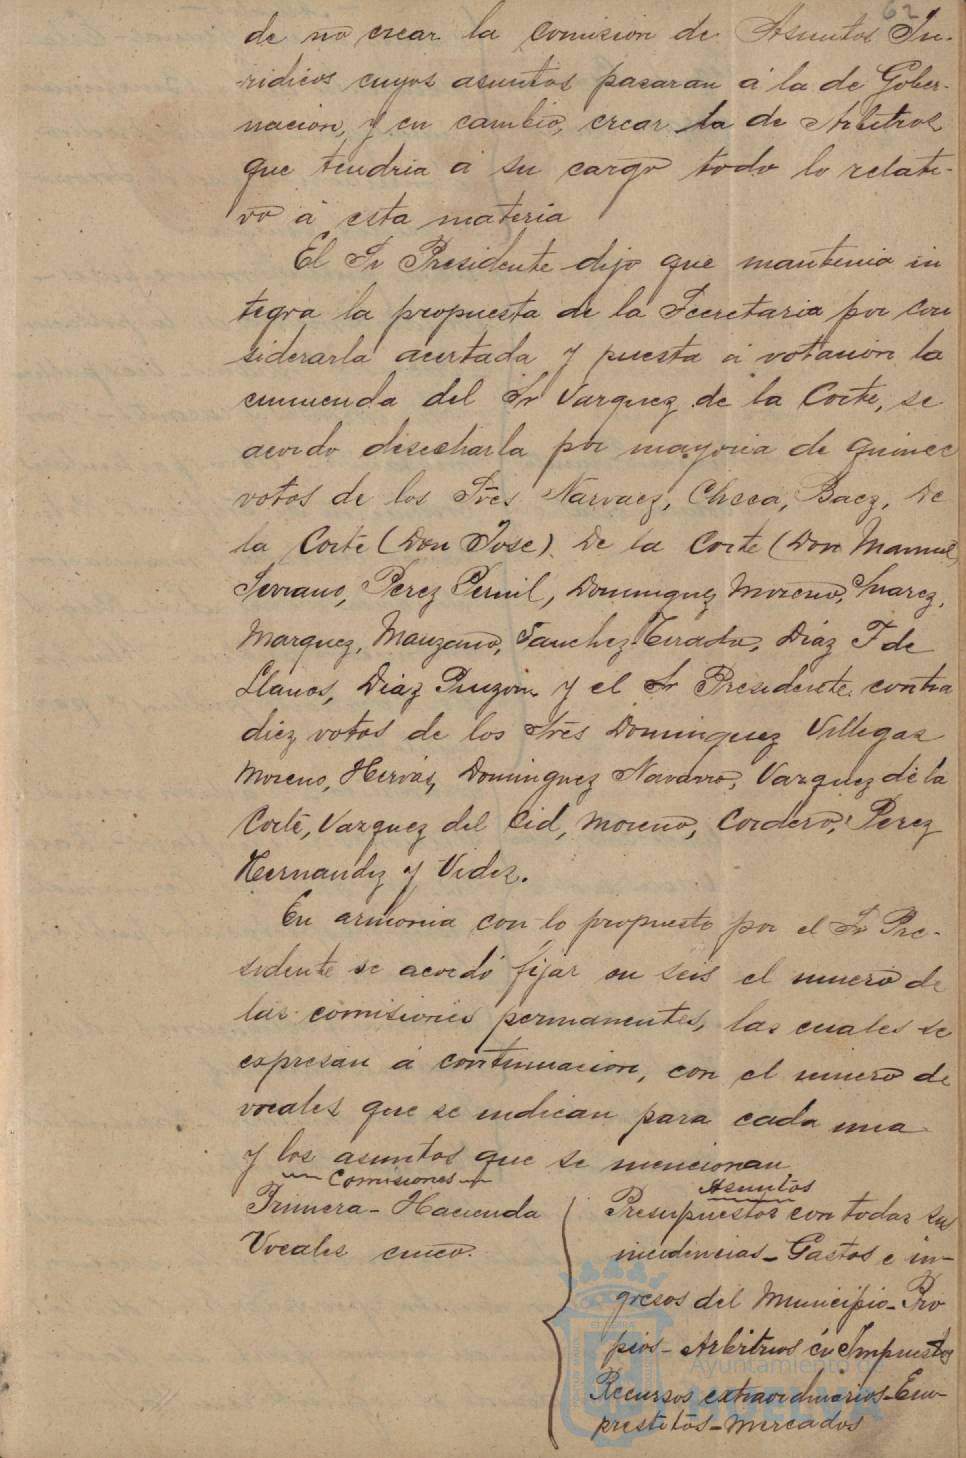 62
de no crear la comision de Asuntos Ju-
ridicos cuyos asuntos pasaran á la de Gober-
nacion, y en cambio, crear la de Arbitrios
que tendria á su cargo todo lo relati-
vo á esta materia
El Sr Presidente dijo que mantenia in
tegra la propuesta de la Secretaria por con
siderarla acertada y puesta á votacion la
enmienda del Sr Vazquez de la Corte, se
acordo desecharla por mayoria de quince
votos de los Sres Narvaez, Checa, Baez, De
la Corte (Don Jose). De la Corte (Don Manuel)
Serrano, Perez Pernil, Dominguez Moreno, Suarez,
Marquez, Manzano, Sanchez Tirado, Diaz F de
Llanos, Diaz Puzon y el Sr Presidente contra
diez votos de los Sres Dominguez Villegas
Moreno, Hervás, Dominguez Navarro, Vazquez de la
Corte, Vazquez del Cid, Moreno, Cordero, Perez
Hernandez y Videz.
En armonia con lo propuesto por el Sr Pre-
sidente se acordó fijar en seis el numero de
las comisiones permanentes, las cuales se
expresan á continuacion, con el numero de
vocales que se indican para cada una
y los asuntos que se mencionan
Comisiones
Asuntos
Primera - Hacienda
Vocales cinco.
Presupuestos con todas sus
incidencias - Gastos e in-
gresos del Municipio - Pro
pios - Arbitrios é Impuestos
Recursos extraordinarios - Em-
prestitos - Mercados
Ayuntamiento de
HUELVA